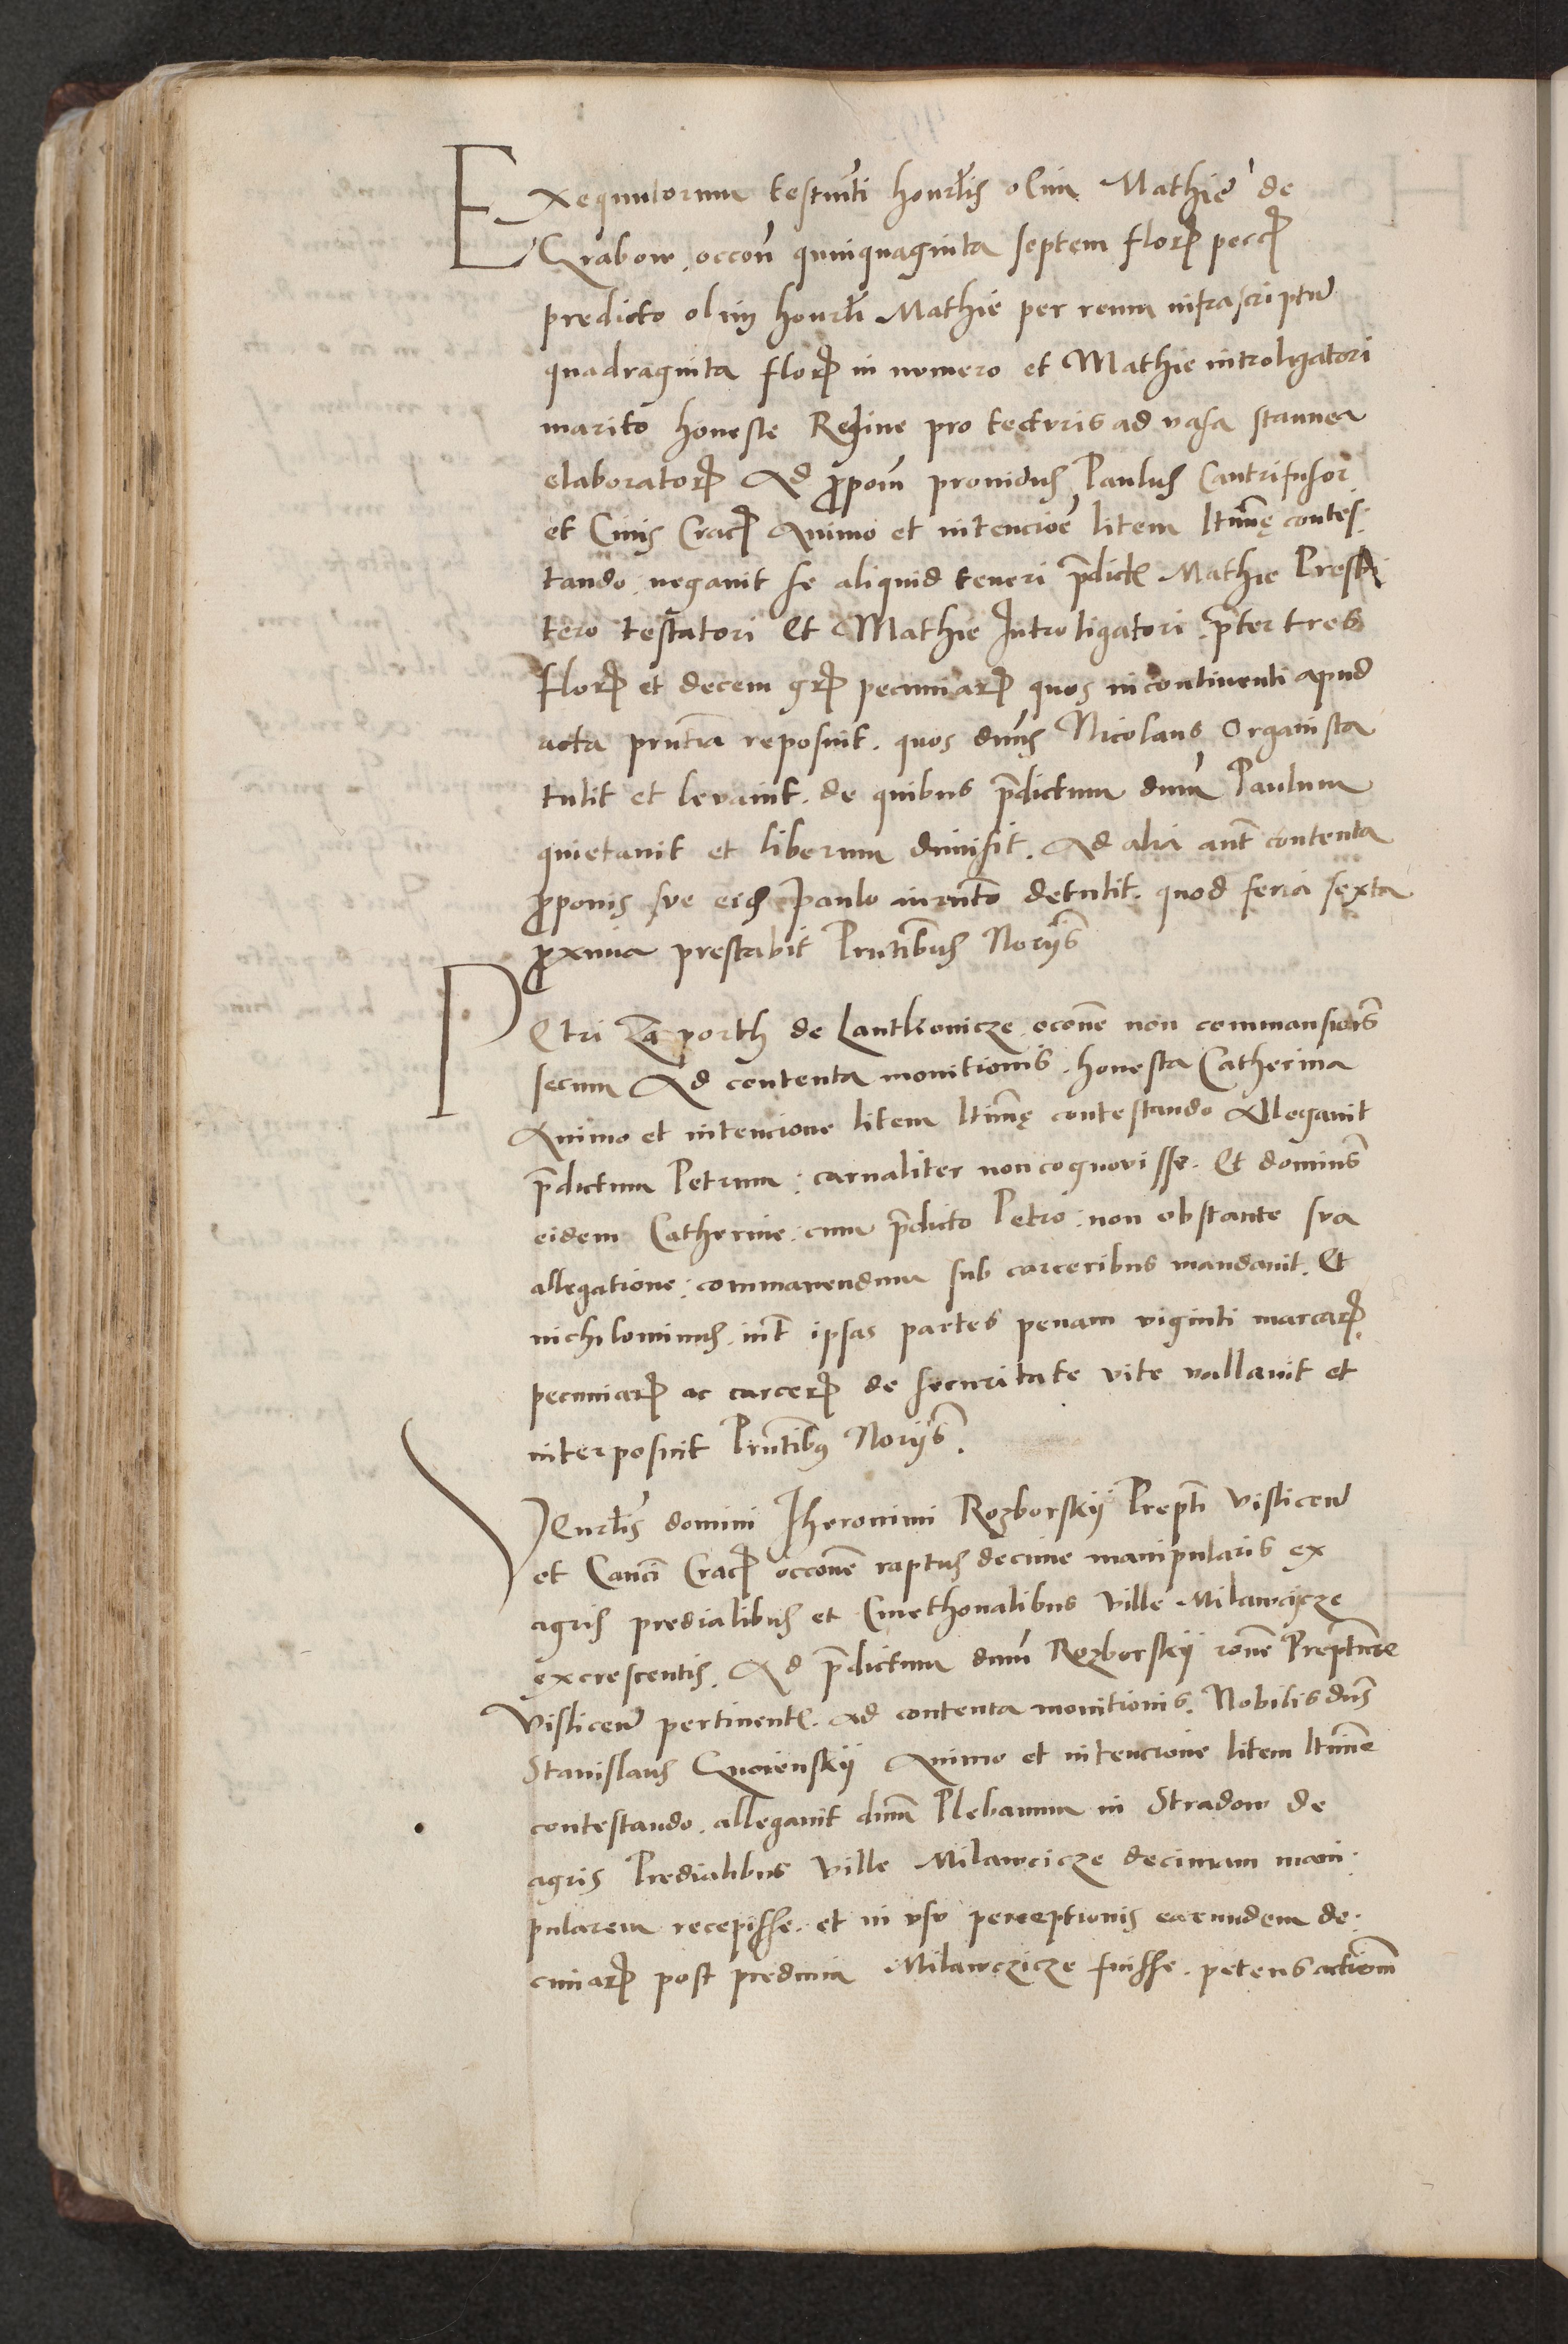 Exequutorum testmti honrlis olim Mathie de
Grabow occon quinquaginta septem florꝝ peccꝝ
predicto olim honrli Mathie per reum infrascriptum
quadraginta florꝝ in nomero et Mathie introligatori
marito honeste Regine pro tecturis ad vasa stannea
elaboratorꝝ Ad ꝓpom prouidus Paulus Cantrifusor
et Ciuis Cracꝝ Animo et intencioe litem ltimę contes-
tando negauit se aliquid teneri p̄dict Mathie Presbi
tero testatori Et Mathie Introligatori p̄ter tres
florꝝ et decem grꝝ pecuniarꝝ quos incontinenti apud
acta prntia reposuit. quos dnus Nicolaus Organista
tulit et levauit. de quibus p̄dictum dnum Paulum
quietauit et liberum dimisit. Ad alia aut contenta
ꝓponis sue eid Paulo iurmto detulit. quod feria sexta
ꝓxima prestabit Prntibus Noriis
Petri Zaporth de Lantkovicze occone non commansionis
secum Ad contenta monitionis. honesta Catherina
Animo et intencione litem ltimę contestando Allegauit
p̄dictum Petrum: carnaliter non cognovisse. Et dominus
eidem Catherine. cum p̄dicto Petro: non obstante sua
allegatione: commanendum sub carceribus mandauit. Et
nichilominus int ipsas partes penam viginti marcarꝝ
pecuniarꝝ ac carcerꝝ de securitate vite vallauit et
interposuit Prntibus Noriis.
Venrlis domini Iheronimi Rozborskij Prepti Visliceñ
et Canci Cracꝝ occone raptus decime manipularis ex
agris predialibus et Cmethonalibus Ville Milawcicze
excrescentis. Ad p̄dictum dnum Rozborskij rone Prepture
Visliceñ pertinent. Ad contenta monitionis. Nobilis dns
Stanislaus Gucienskij Animo et intencione litem ltime
contestando. allegauit dnum Plebanum in Stradow de
agris Predialibus Ville Milawcicze decimam mani-
pularem recepisse. et in vsu perceptionis earundem de-
cimarꝝ post predium Milawczicze fuisse. petens actiom